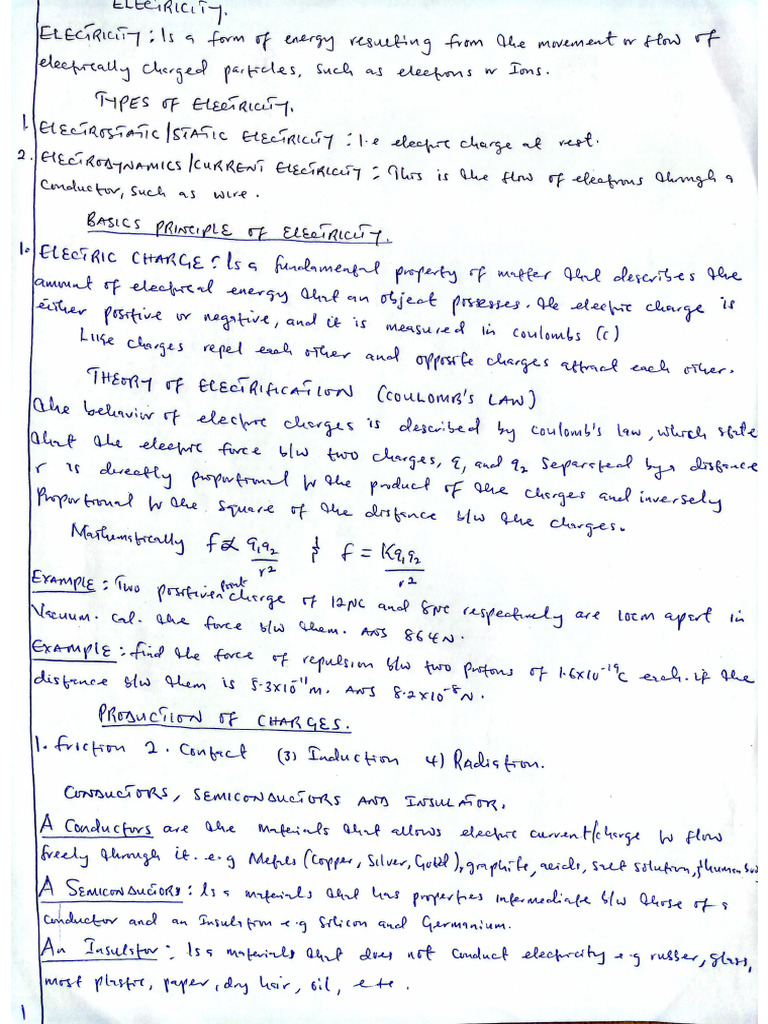 ELECTRICITY.
ELECTRICITY: Is a form of energy resulting from the movement or flow of
electrically charged particles, such as electrons or Ions.
TYPES OF ELECTRICITY.
1. ELECTROSTATIC/STATIC ELECTRICITY: i.e electric charge at rest.
2. ELECTRODYNAMICS/CURRENT ELECTRICITY: This is the flow of electrons through a
conductor, such as wire.
BASICS PRINCIPLE OF ELECTRICITY.
1. ELECTRIC CHARGE: Is a fundamental property of matter that describes the
amount of electrical energy that an object possesses. The electric charge is
either positive or negative, and it is measured in coulombs (c)
Like charges repel each other and opposite charges attract each other.
THEORY OF ELECTRIFICATION (COULOMB'S LAW)
The behavior of electric charges is described by coulomb's law, which state
that the electric force b/w two charges, q1 and q2 separated by a distance
r is directly proportional to the product of the charges and inversely
Proportional to the square of the distance b/w the charges.
Mathematically f ∝ q1q2/r² & f = Kq1q2/r²
EXAMPLE: Two positive point charge of 12μC and 8μc respectively are 10cm apart in
Vacuum. Cal. the force b/w them. ANS 864N.
EXAMPLE: find the force of repulsion b/w two protons of 1.6x10⁻¹⁹C each. if the
distance b/w them is 5.3x10⁻¹¹m. ANS 8.2x10⁻⁸N.
PRODUCTION OF CHARGES.
1. friction 2. Contact (3) Induction 4) Radiation.
CONDUCTORS, SEMICONDUCTORS AND INSULATOR.
A Conductors are the materials that allows electric current/charge to flow
freely through it. e.g Metals (Copper, Silver, Gold), graphite, acids, salt solution, & human
A SEMICONDUCTORS: Is a materials that has properties intermediate b/w those of a
conductor and an Insulation e.g Silicon and Germanium.
An Insulator: Is a materials that does not conduct electricity e.g rubber, glass,
most plastic, paper, dry hair, oil, etc.
1